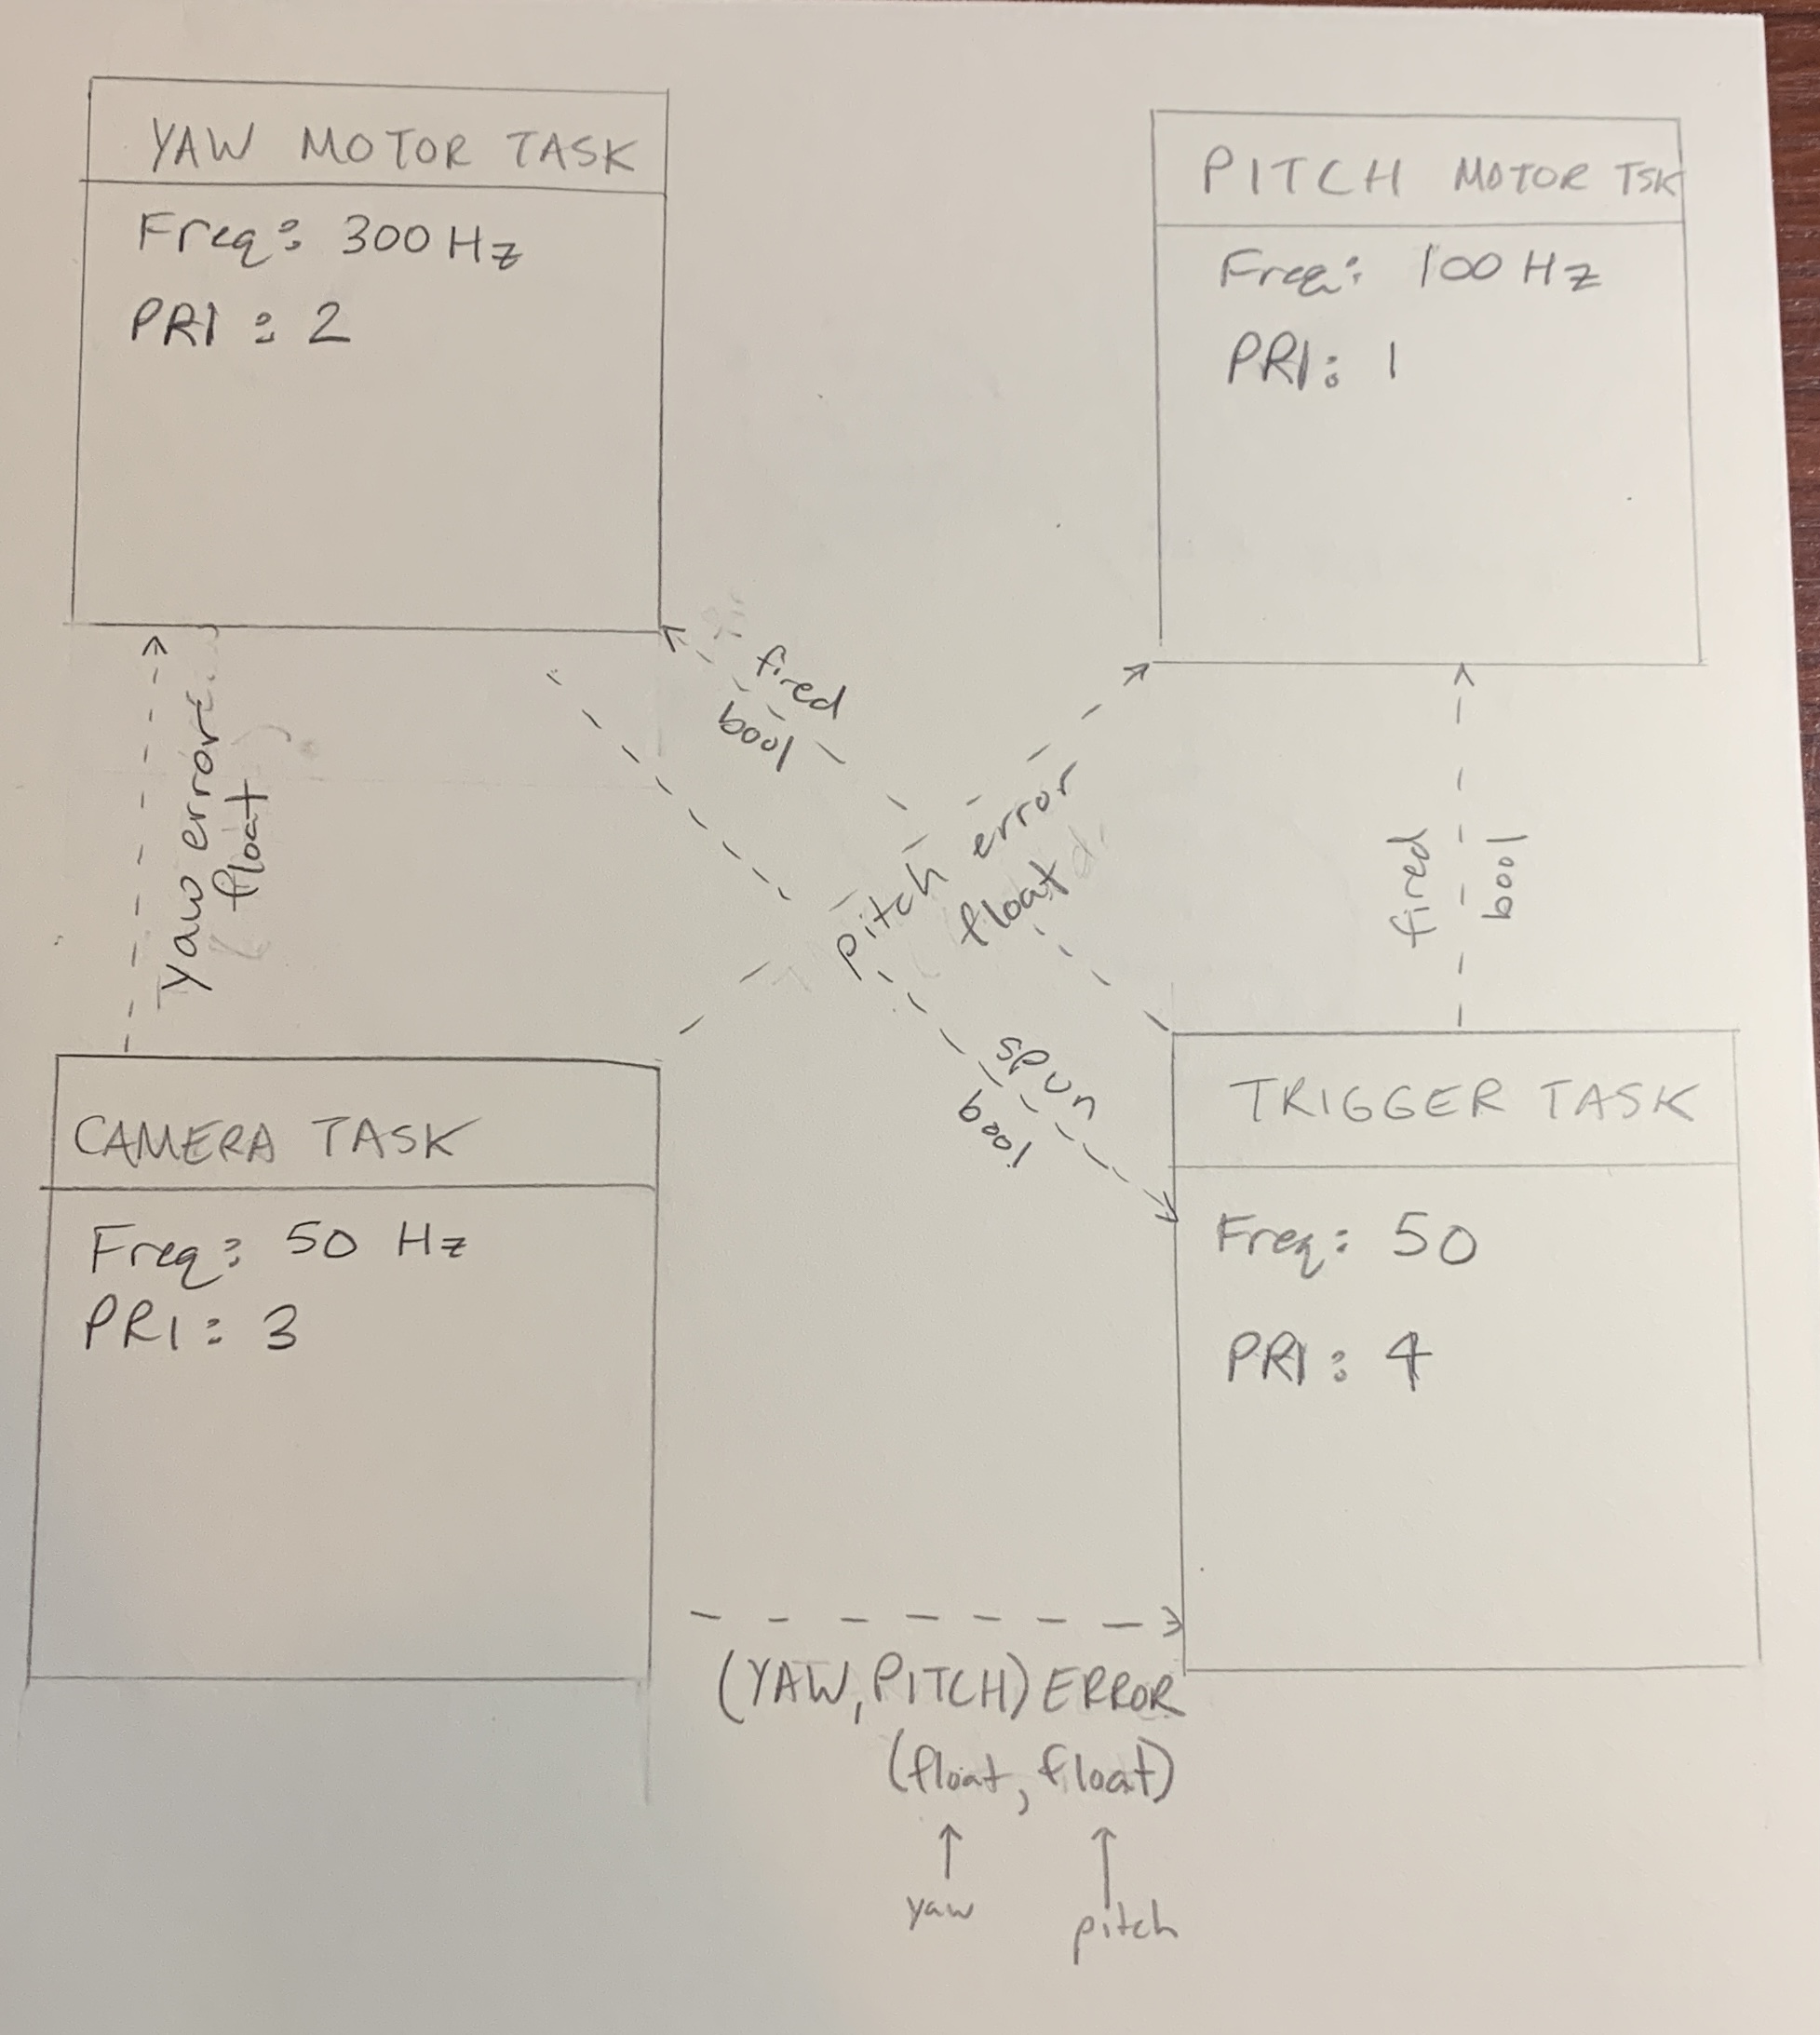 YAW MOTOR TASK
Freq: 300 Hz
PRI: 2
PITCH MOTOR TSK
Freq: 100 Hz
PRI: 1
fired
bool
yaw error
float
pitch error
float
fired
bool
spun
bool
CAMERA TASK
Freq: 50 Hz
PRI: 3
TRIGGER TASK
Freq: 50
PRI: 4
(YAW, PITCH) ERROR
(float, float)
yaw
pitch